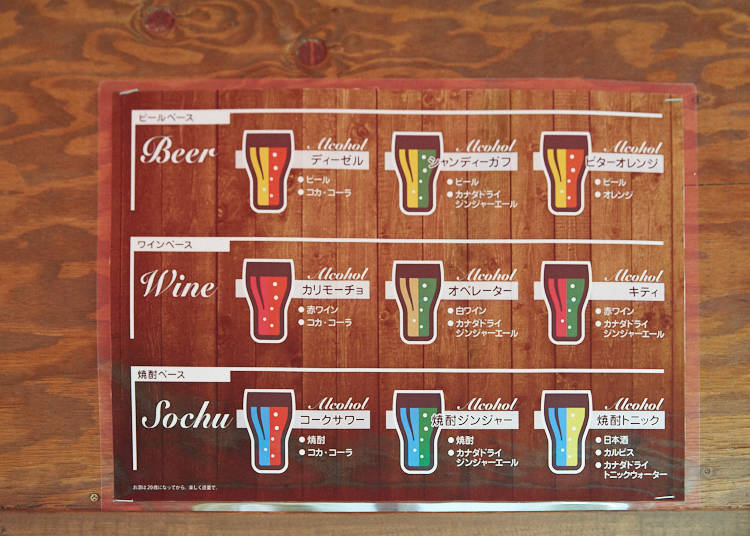 ビールベース
Beer
Alcohol
ディーゼル
● ビール
● コカ・コーラ
Alcohol
シャンディーガフ
● ビール
● カナダドライ
ジンジャーエール
Alcohol
ビターオレンジ
● ビール
● オレンジ
ワインベース
Wine
Alcohol
カリモーチョ
● 赤ワイン
● コカ・コーラ
Alcohol
オペレーター
● 白ワイン
● カナダドライ
ジンジャーエール
Alcohol
キティ
● 赤ワイン
● カナダドライ
ジンジャーエール
焼酎ベース
Sochu
Alcohol
コークサワー
● 焼酎
● コカ・コーラ
Alcohol
焼酎ジンジャー
● 焼酎
● カナダドライ
ジンジャーエール
Alcohol
焼酎トニック
● 日本酒
● カルピス
● カナダドライ
トニックウォーター
お酒は20歳になってから。楽しく適量で。